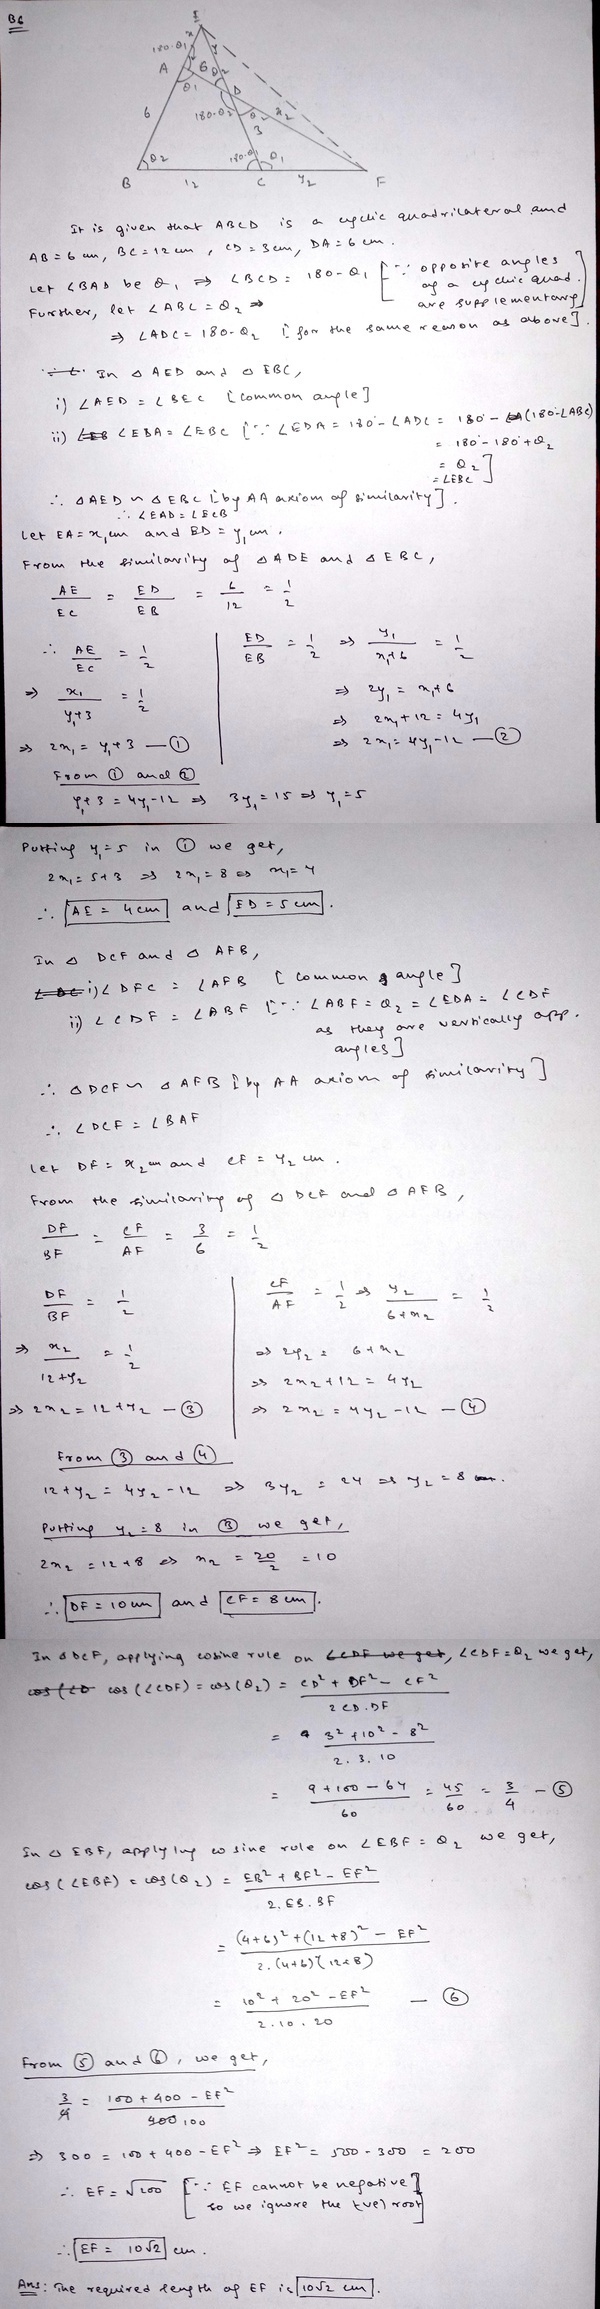 B6
E
x₁
y₁
180-θ₁
A
6
θ₂
θ₁
D
180-θ₂
θ₂
x₂
6
3
θ₂
180-θ₁
θ₁
B
12
C
y₂
F
It is given that ABCD is a cyclic quadrilateral and
AB = 6 cm, BC = 12 cm, CD = 3 cm, DA = 6 cm.
Let ∠BAD be θ₁ ⇒ ∠BCD = 180-θ₁ [∵ opposite angles of a cyclic quad. are supplementary]
Further, let ∠ABC = θ₂ ⇒
⇒ ∠ADC = 180-θ₂ [for the same reason as above].
In △ AED and △ EBC,
i) ∠AED = ∠BEC [common angle]
ii) ∠EDA = ∠EBC [∵ ∠EDA = 180° - ∠ADC = 180° - (180-∠ABC)
= 180° - 180° + θ₂
= θ₂
= ∠EBC]
∴ △AED ~ △EBC [by AA axiom of similarity].
∴ ∠EAD = ∠ECB
Let EA = x₁ cm and ED = y₁ cm.
From the similarity of △ADE and △EBC,
AE/EC = ED/EB = 6/12 = 1/2
∴ AE/EC = 1/2
ED/EB = 1/2 ⇒ y₁/(x₁+6) = 1/2
⇒ x₁/(y₁+3) = 1/2
⇒ 2y₁ = x₁+6
⇒ 2x₁+12 = 4y₁
⇒ 2x₁ = y₁+3 — ①
⇒ 2x₁ = 4y₁-12 — ②
From ① and ②
y₁+3 = 4y₁-12 ⇒ 3y₁ = 15 ⇒ y₁ = 5
Putting y₁ = 5 in ① we get,
2x₁ = 5+3 ⇒ 2x₁ = 8 ⇒ x₁ = 4
∴ AE = 4 cm and ED = 5 cm.
In △ DCF and △ AFB,
i) ∠DFC = ∠AFB [common angle]
ii) ∠CDF = ∠ABF [∵ ∠ABF = θ₂ = ∠EDA = ∠CDF
as they are vertically opp.
angles]
∴ △DCF ~ △AFB [by AA axiom of similarity]
∴ ∠DCF = ∠BAF
Let DF = x₂ cm and CF = y₂ cm.
From the similarity of △ DCF and △ AFB,
DF/BF = CF/AF = 3/6 = 1/2
DF/BF = 1/2
CF/AF = 1/2 ⇒ y₂/(6+x₂) = 1/2
⇒ x₂/(12+y₂) = 1/2
⇒ 2y₂ = 6+x₂
⇒ 2x₂+12 = 4y₂
⇒ 2x₂ = 12+y₂ — ③
⇒ 2x₂ = 4y₂-12 — ④
From ③ and ④
12+y₂ = 4y₂-12 ⇒ 3y₂ = 24 ⇒ y₂ = 8
Putting y₂ = 8 in ③ we get,
2x₂ = 12+8 ⇒ x₂ = 20/2 = 10
∴ DF = 10 cm and CF = 8 cm.
In △DCF, applying cosine rule on ∠CDF we get, ∠CDF = θ₂ we get,
cos(∠CDF) = cos(θ₂) = (CD² + DF² - CF²)/(2 CD.DF)
= (3² + 10² - 8²)/(2.3.10)
= (9+100-64)/60 = 45/60 = 3/4 — ⑤
In △ EBF, applying cosine rule on ∠EBF = θ₂ we get,
cos(∠EBF) = cos(θ₂) = (EB² + BF² - EF²)/(2.EB.BF)
= ((4+6)² + (12+8)² - EF²)/(2.(4+6)(12+8))
= (10² + 20² - EF²)/(2.10.20) — ⑥
From ⑤ and ⑥, we get,
3/4 = (100+400-EF²)/400 100
⇒ 300 = 100+400-EF² ⇒ EF² = 500-300 = 200
∴ EF = √200 [∵ EF cannot be negative so we ignore the (-ve) root]
∴ EF = 10√2 cm.
Ans: The required length of EF is 10√2 cm.